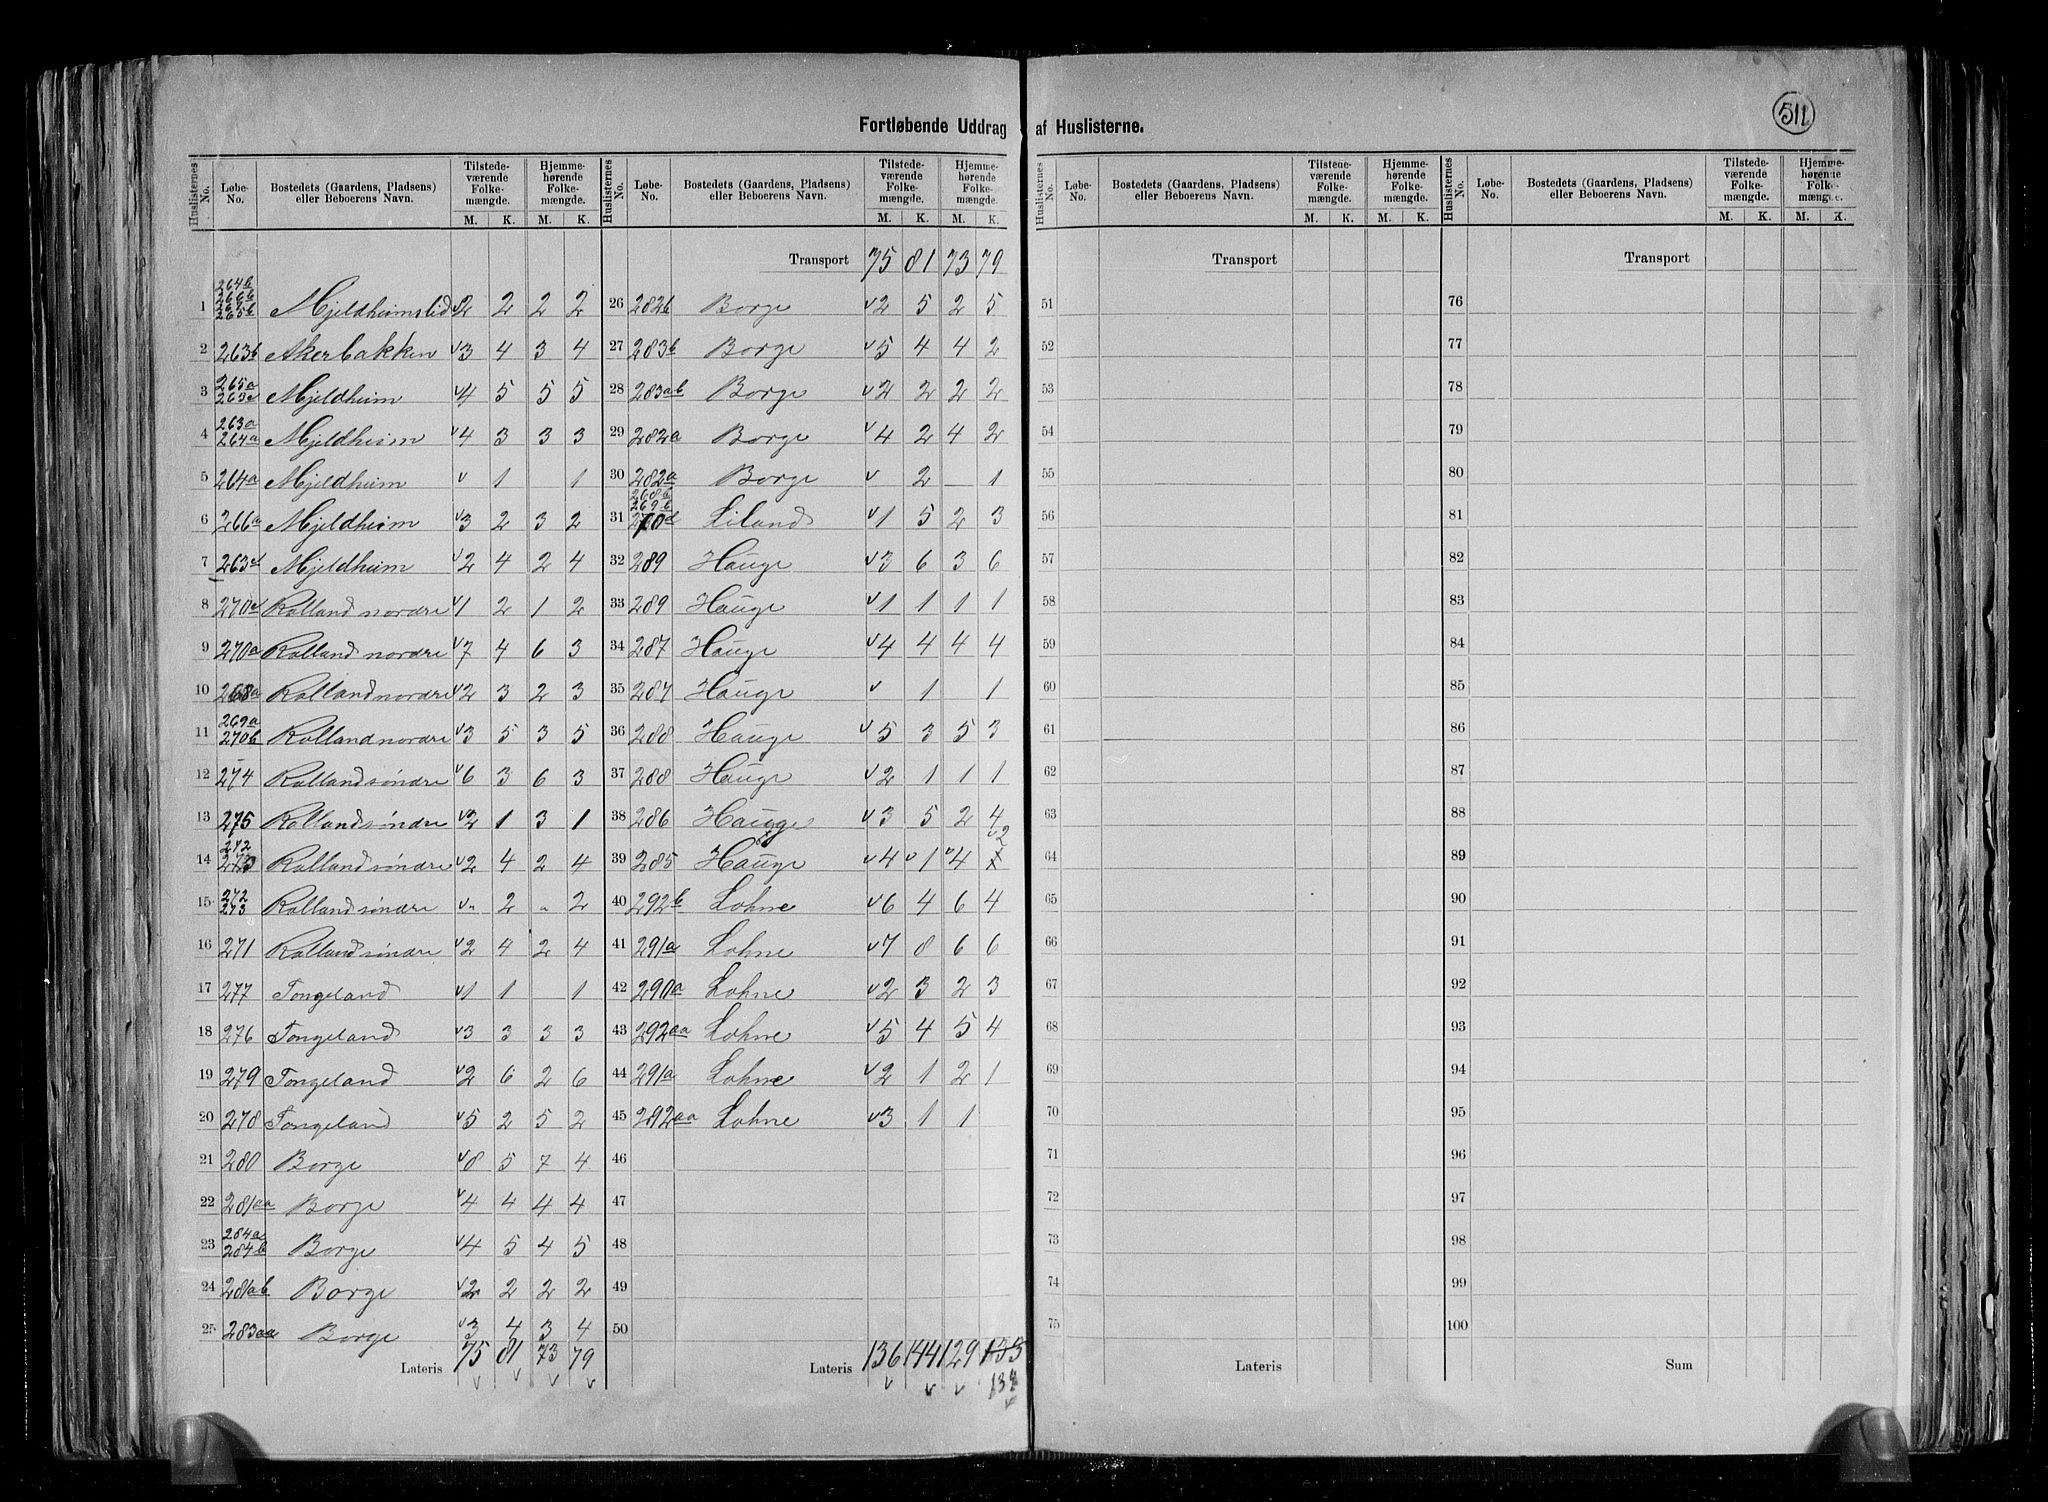 511
Fortløbende Uddrag af Huslisterne.
Huslisternes No. | Løbe-No. | Bostedets (Gaardens, Pladsens) eller Beboerens Navn. | Tilstedeværende Folkemængde. M. K. | Hjemmehørende Folkemængde. M. K.
1 264b 266b 265b Mjeldheimslid 2 2 2 2
2 263b Akerbakken v3 4 3 4
3 265a Mjeldheim v4 5 5 5
4 263a 264a Mjeldheim v4 3 3 3
5 264a Mjeldheim v 1 1
6 266a Mjeldheim v3 2 3 2
7 263d Mjeldheim v2 4 2 4
8 270d Rolland nordre v1 2 1 2
9 270a Rolland nordre v7 4 6 3
10 268a Rolland nordre v2 3 2 3
11 269a 270b Rolland nordre v3 5 3 5
12 274 Rolland søndre v6 3 6 3
13 275 Rolland søndre v2 1 3 1
14 272 273 Rolland søndre v2 4 2 4
15 272 273 Rolland søndre v" 2 " 2
16 271 Rolland søndre v2 4 2 4
17 277 Tongeland v1 1 1
18 276 Tongeland v3 3 3 3
19 279 Tongeland v2 6 2 6
20 278 Tongeland v5 2 5 2
21 280 Borge v8 5 7 4
22 281aa Borge v4 4 4 4
23 284a 284b Borge v4 5 4 5
24 281ab Borge v2 2 2 2
25 283aa Borge v3 4 3 4
Lateris 75 81 73 79
v v v v
Huslisternes No. | Løbe-No. | Bostedets (Gaardens, Pladsens) eller Beboerens Navn. | Tilstedeværende Folkemængde. M. K. | Hjemmehørende Folkemængde. M. K.
Transport 75 81 73 79
26 282b Borge v2 5 2 5
27 283b Borge v5 4 4 2
28 283ab Borge v2 2 2 2
29 282a Borge v4 2 4 2
30 282a Borge v 2 1
31 268b 269b 270d Liland v1 5 2 3
32 289 Hauge v3 6 3 6
33 289 Hauge v1 1 1 1
34 287 Hauge v4 4 4 4
35 287 Hauge v 1 1
36 288 Hauge v5 3 5 3
37 288 Hauge v2 1 1 1
38 286 Hauge v3 5 2 4
39 285 Hauge v4 v1 v4 v2
40 292b Lohne v6 4 6 4
41 291a Lohne v7 8 6 6
42 290a Lohne v2 3 2 3
43 292aa Lohne v5 4 5 4
44 291a Lohne v2 1 2 1
45 292aa Lohne v3 1 1
46
47
48
49
50
Lateris 136 144 129 133
134
v v v v
Huslisternes No. | Løbe-No. | Bostedets (Gaardens, Pladsens) eller Beboerens Navn. | Tilstedeværende Folkemængde. M. K. | Hjemmehørende Folkemængde. M. K.
Transport
51
52
53
54
55
56
57
58
59
60
61
62
63
64
65
66
67
68
69
70
71
72
73
74
75
Lateris
Huslisternes No. | Løbe-No. | Bostedets (Gaardens, Pladsens) eller Beboerens Navn. | Tilstedeværende Folkemængde. M. K. | Hjemmehørende Folkemængde. M. K.
Transport
76
77
78
79
80
81
82
83
84
85
86
87
88
89
90
91
92
93
94
95
96
97
98
99
100
Sum